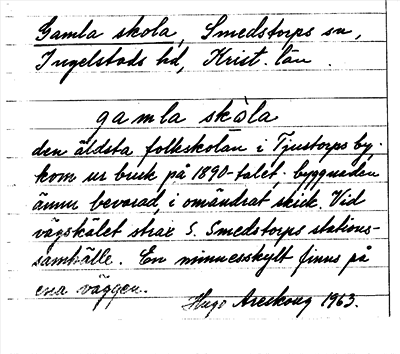 Gamla skola, Smedstorps sn,
Ingelstads hd, Krist. län.
gamla skola
den äldsta folkskolan i Tjustorps by.
kom ur bruk på 1890-talet. byggnaden
ännu bevarad, i omändrat skick. Vid
vägskälet strax S. Smedstorps stations-
samhälle. En minnesskylt finns på
ena väggen.
Hugo Areskoug 1963.